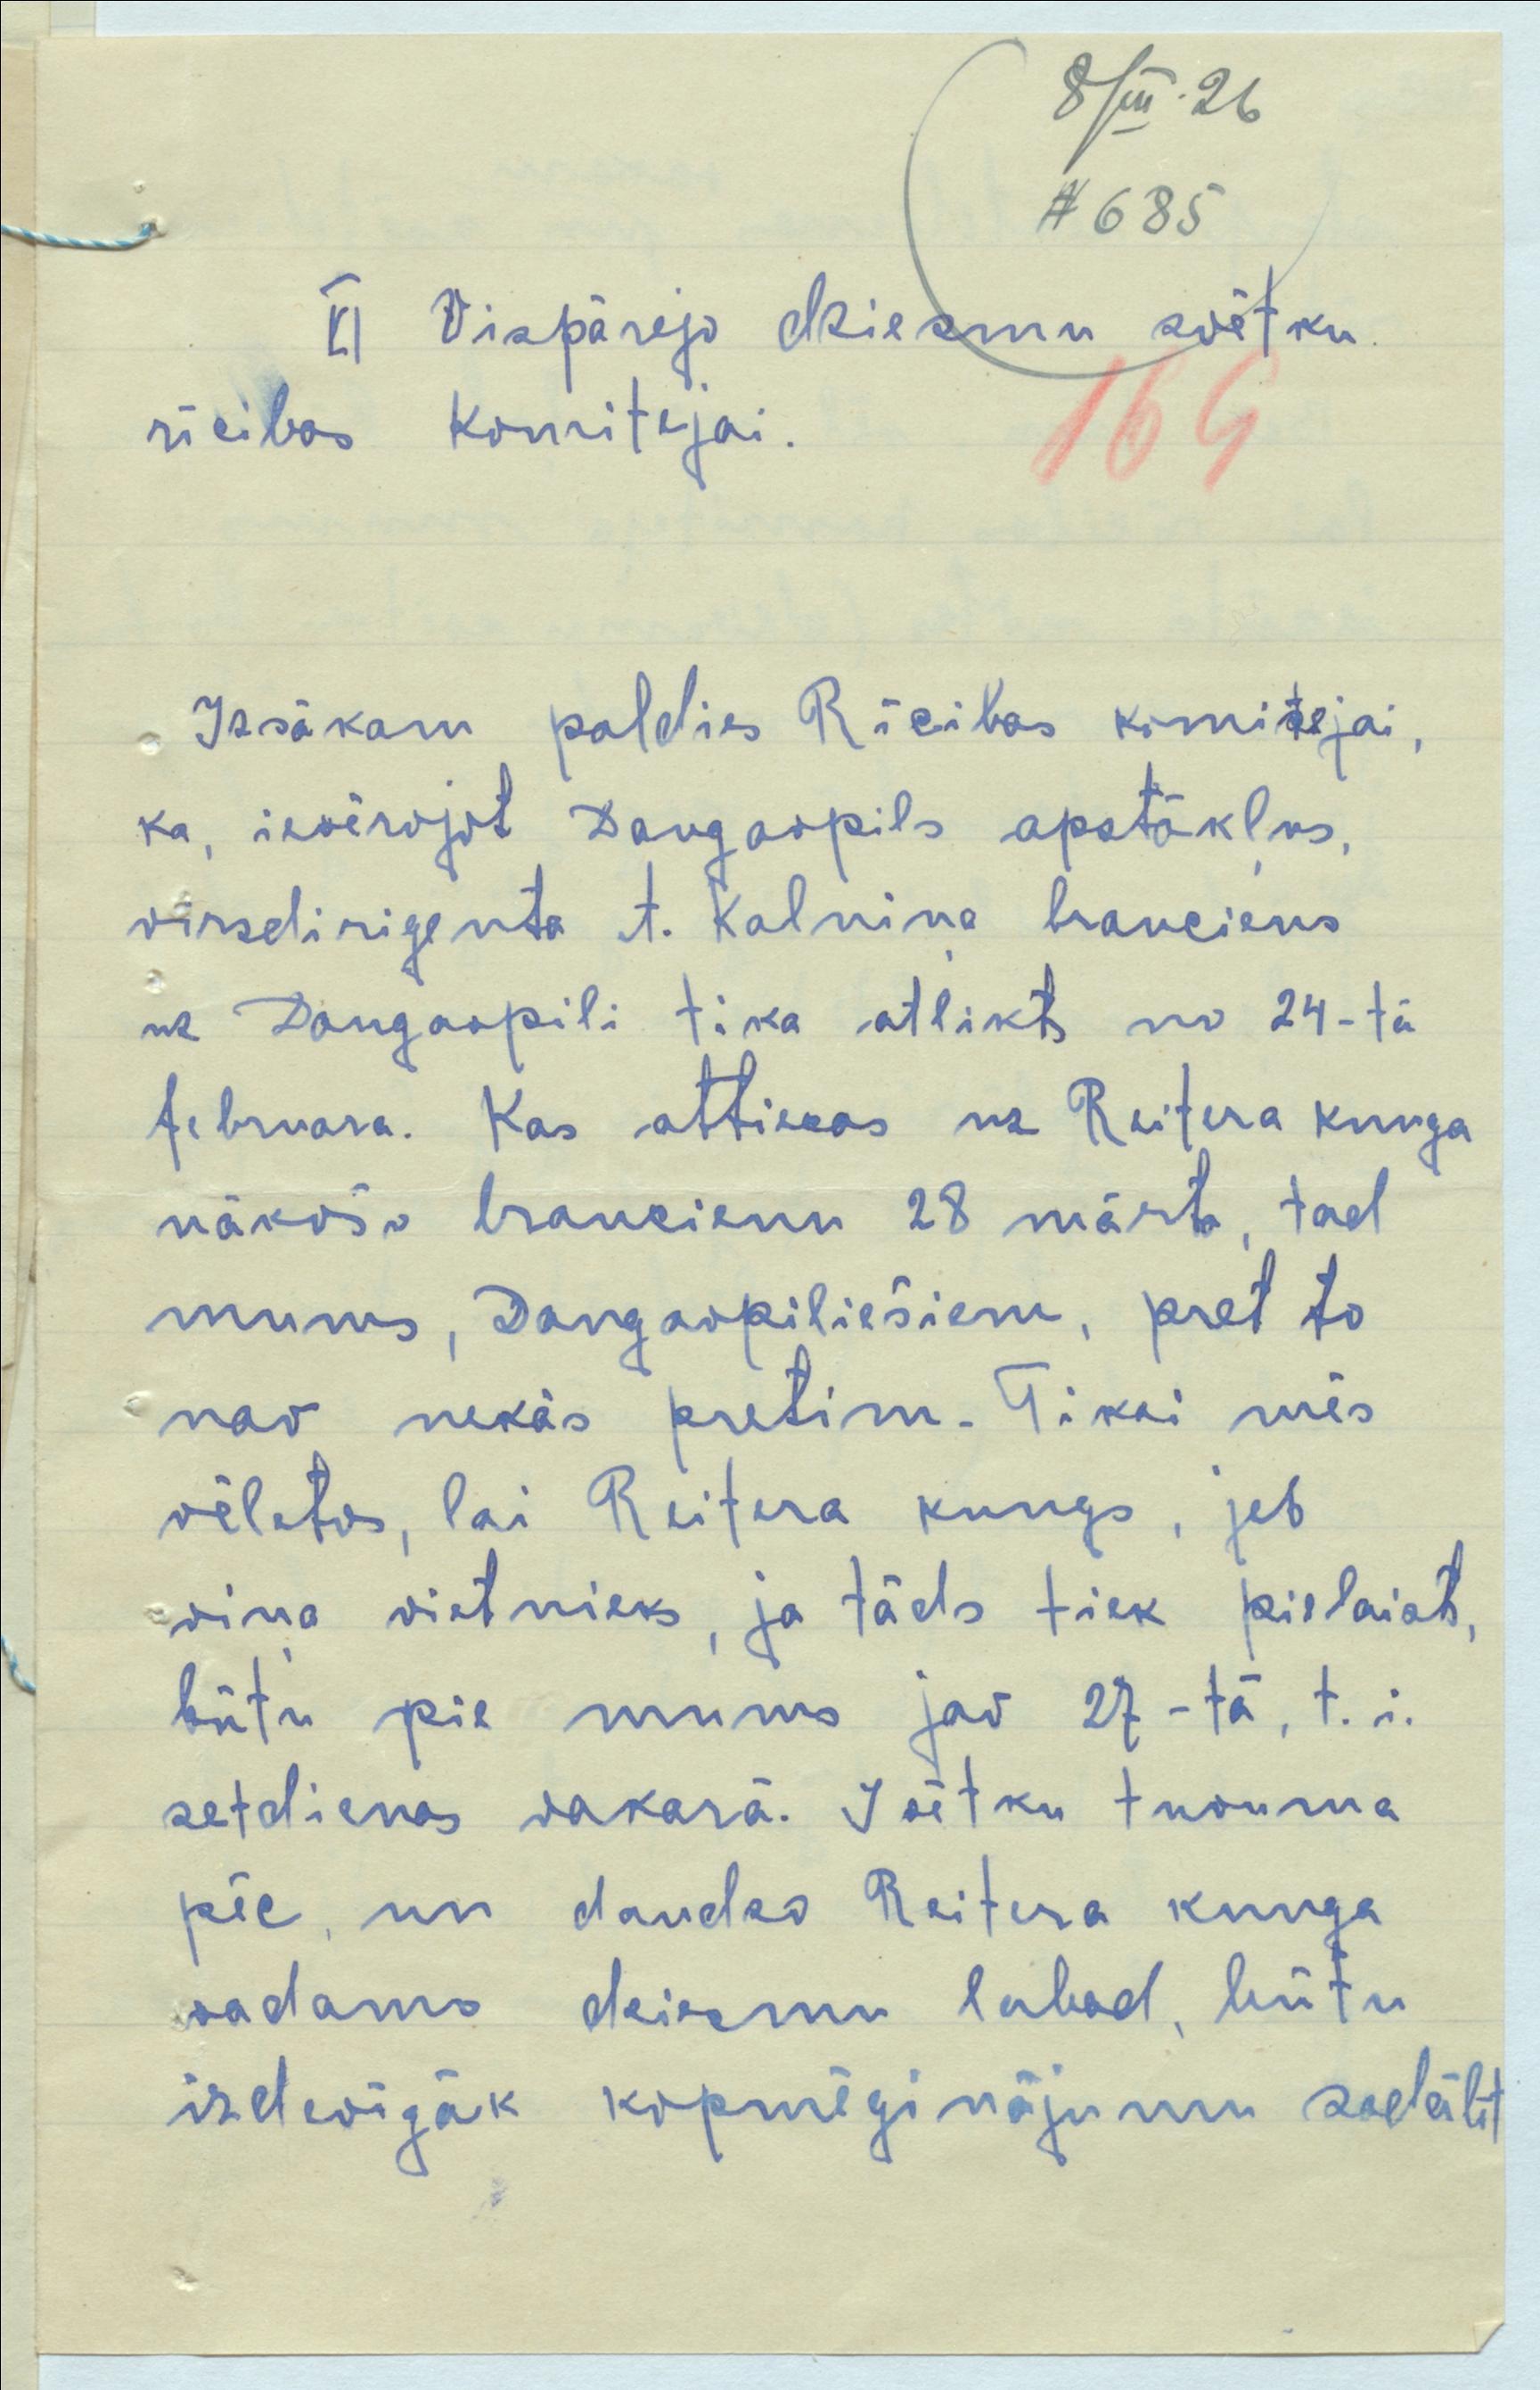 8/III.26
#685
VI Vispārejo dziesmu svētku
rīcibas komitejai.
164
Izsākam paldies Rīcibas komitejai,
ka, ievērojot Daugavpils apstākļus,
virsdirigenta t. Kalniņa brauciens
uz Daugavpili tika atlikts no 24-tā
februara. Kas attiecas uz Reitera kunga
nākošo braucienu 28 mārta, tad
mums, Daugavpiliešiem, pret to
nav nekās pretim. Tikai mēs
vēletos, lai Reitera kungs, jeb
viņa vietnieks, ja tāds tiek pielaists,
būtu pie mums jav 27-tā, t. i.
setdienas vakarā. Svētku tuvuma
pēc, un daudzo Reitera kunga
vadamo dziesmu labad, būtu
izdevīgāk kopmēģinājumu sadālit